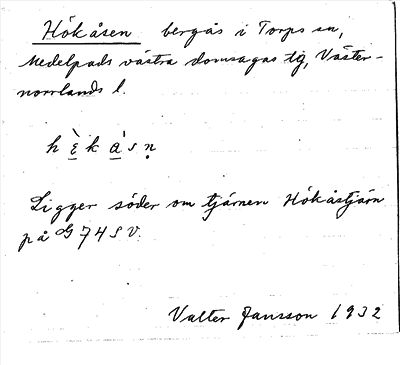 Hökåsen bergås i Torps sn,
Medelpads västra domsagas tg, Väster-
norrlands l.
h è k a s n
Ligger söder om tjärnen Hökåstjärn
på G 74 S V.
Valter Jansson 1932